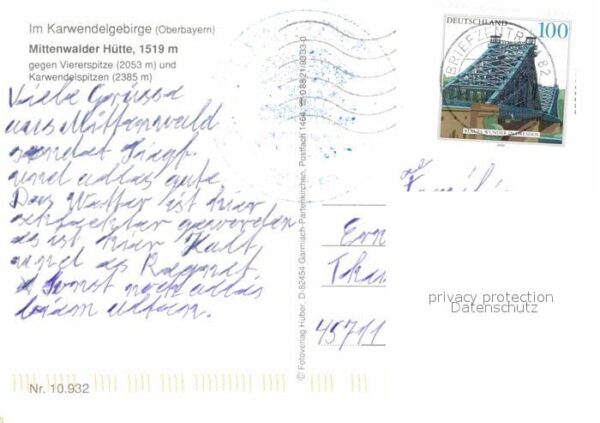 Im Karwendelgebirge (Oberbayern)
Mittenwalder Hütte, 1519 m
gegen Viererspitze (2053 m) und
Karwendelspitzen (2385 m)
Viele Grüsse
aus Mittenwald
sendet Siegf.
und alles gute.
Das Wetter ist hier
schlechter geworden
es ist hier Kalt
und es Regnet.
Sonst noch alles
beim alten.
Nr. 10.932
© Fotoverlag Huber, D-82454 Garmisch-Partenkirchen, Postfach 1464,
DEUTSCHLAND 100
BRIEFZENTRUM 82
BLAUES WUNDER DRESDEN
Familie
Ern
Tha
45711
privacy protection
Datenschutz